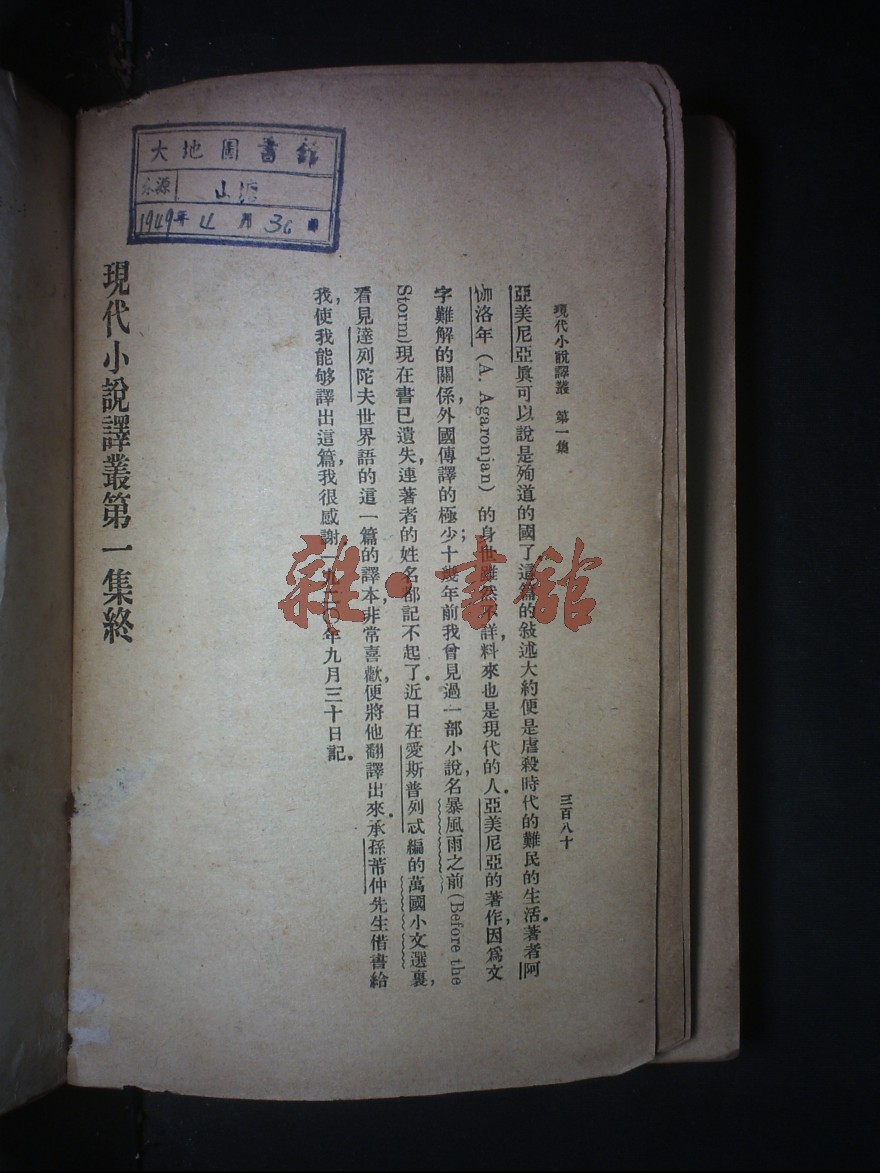 現代小說譯叢 第一集
三百八十
亞美尼亞眞可以說是殉道的國了。這篇的敍述大約便是虐殺時代的難民的生活。著者阿
伽洛年 (A. Agaronjan) 的身世雖然不詳，料來也是現代的人。亞美尼亞的著作，因爲文
字難解的關係，外國傳譯的極少；十幾年前我曾見過一部小說，名暴風雨之前(Before the
Storm)現在書已遺失，連著者的姓名都記不起了。近日在愛斯普列忒編的萬國小文選裏，
看見達列陀夫世界語的這一篇的譯本，非常喜歡，便將他翻譯出來。承孫芾仲先生借書給
我，使我能够譯出這篇，我很感謝。一九二〇年九月三十日記。
現代小說譯叢第一集終
大地圖書館
來源
1949年 4 月 30
雜·書館